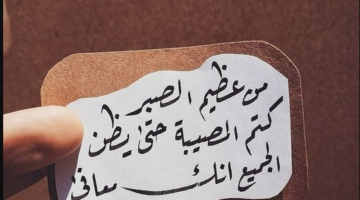 من عظيم الصبر
كتم المصيبة حتى يظن
الجميع انك معافى